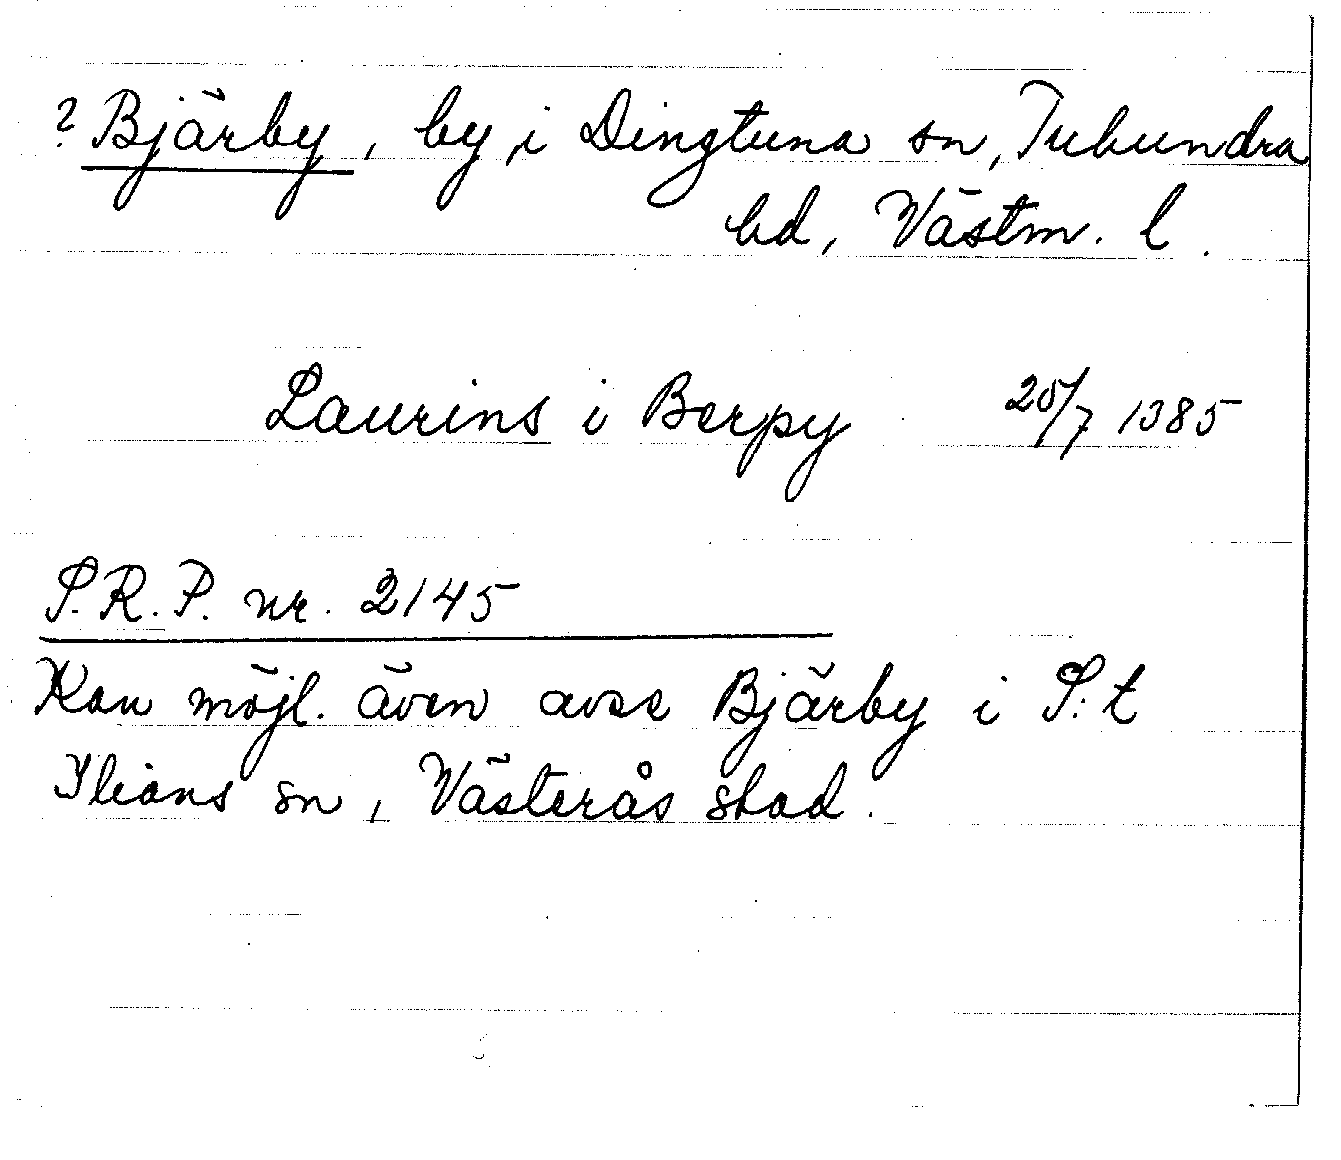 ? Bjärby, by i Dingtuna sn, Tuhundra
hd, Västm. l.
Laurins i Berpy 25/7 1385
S.R.P. nr. 2145
Kan möjl. även avse Bjärby i S:t
Ilians sn, Västerås stad.